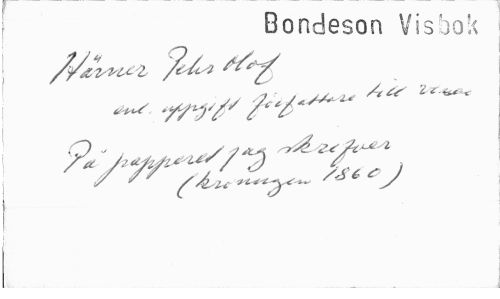 Bondeson Visbok
Härner Pehr Olof
enl. uppgift författare till visan
På papperet jag skrifver
(kröningen 1860)